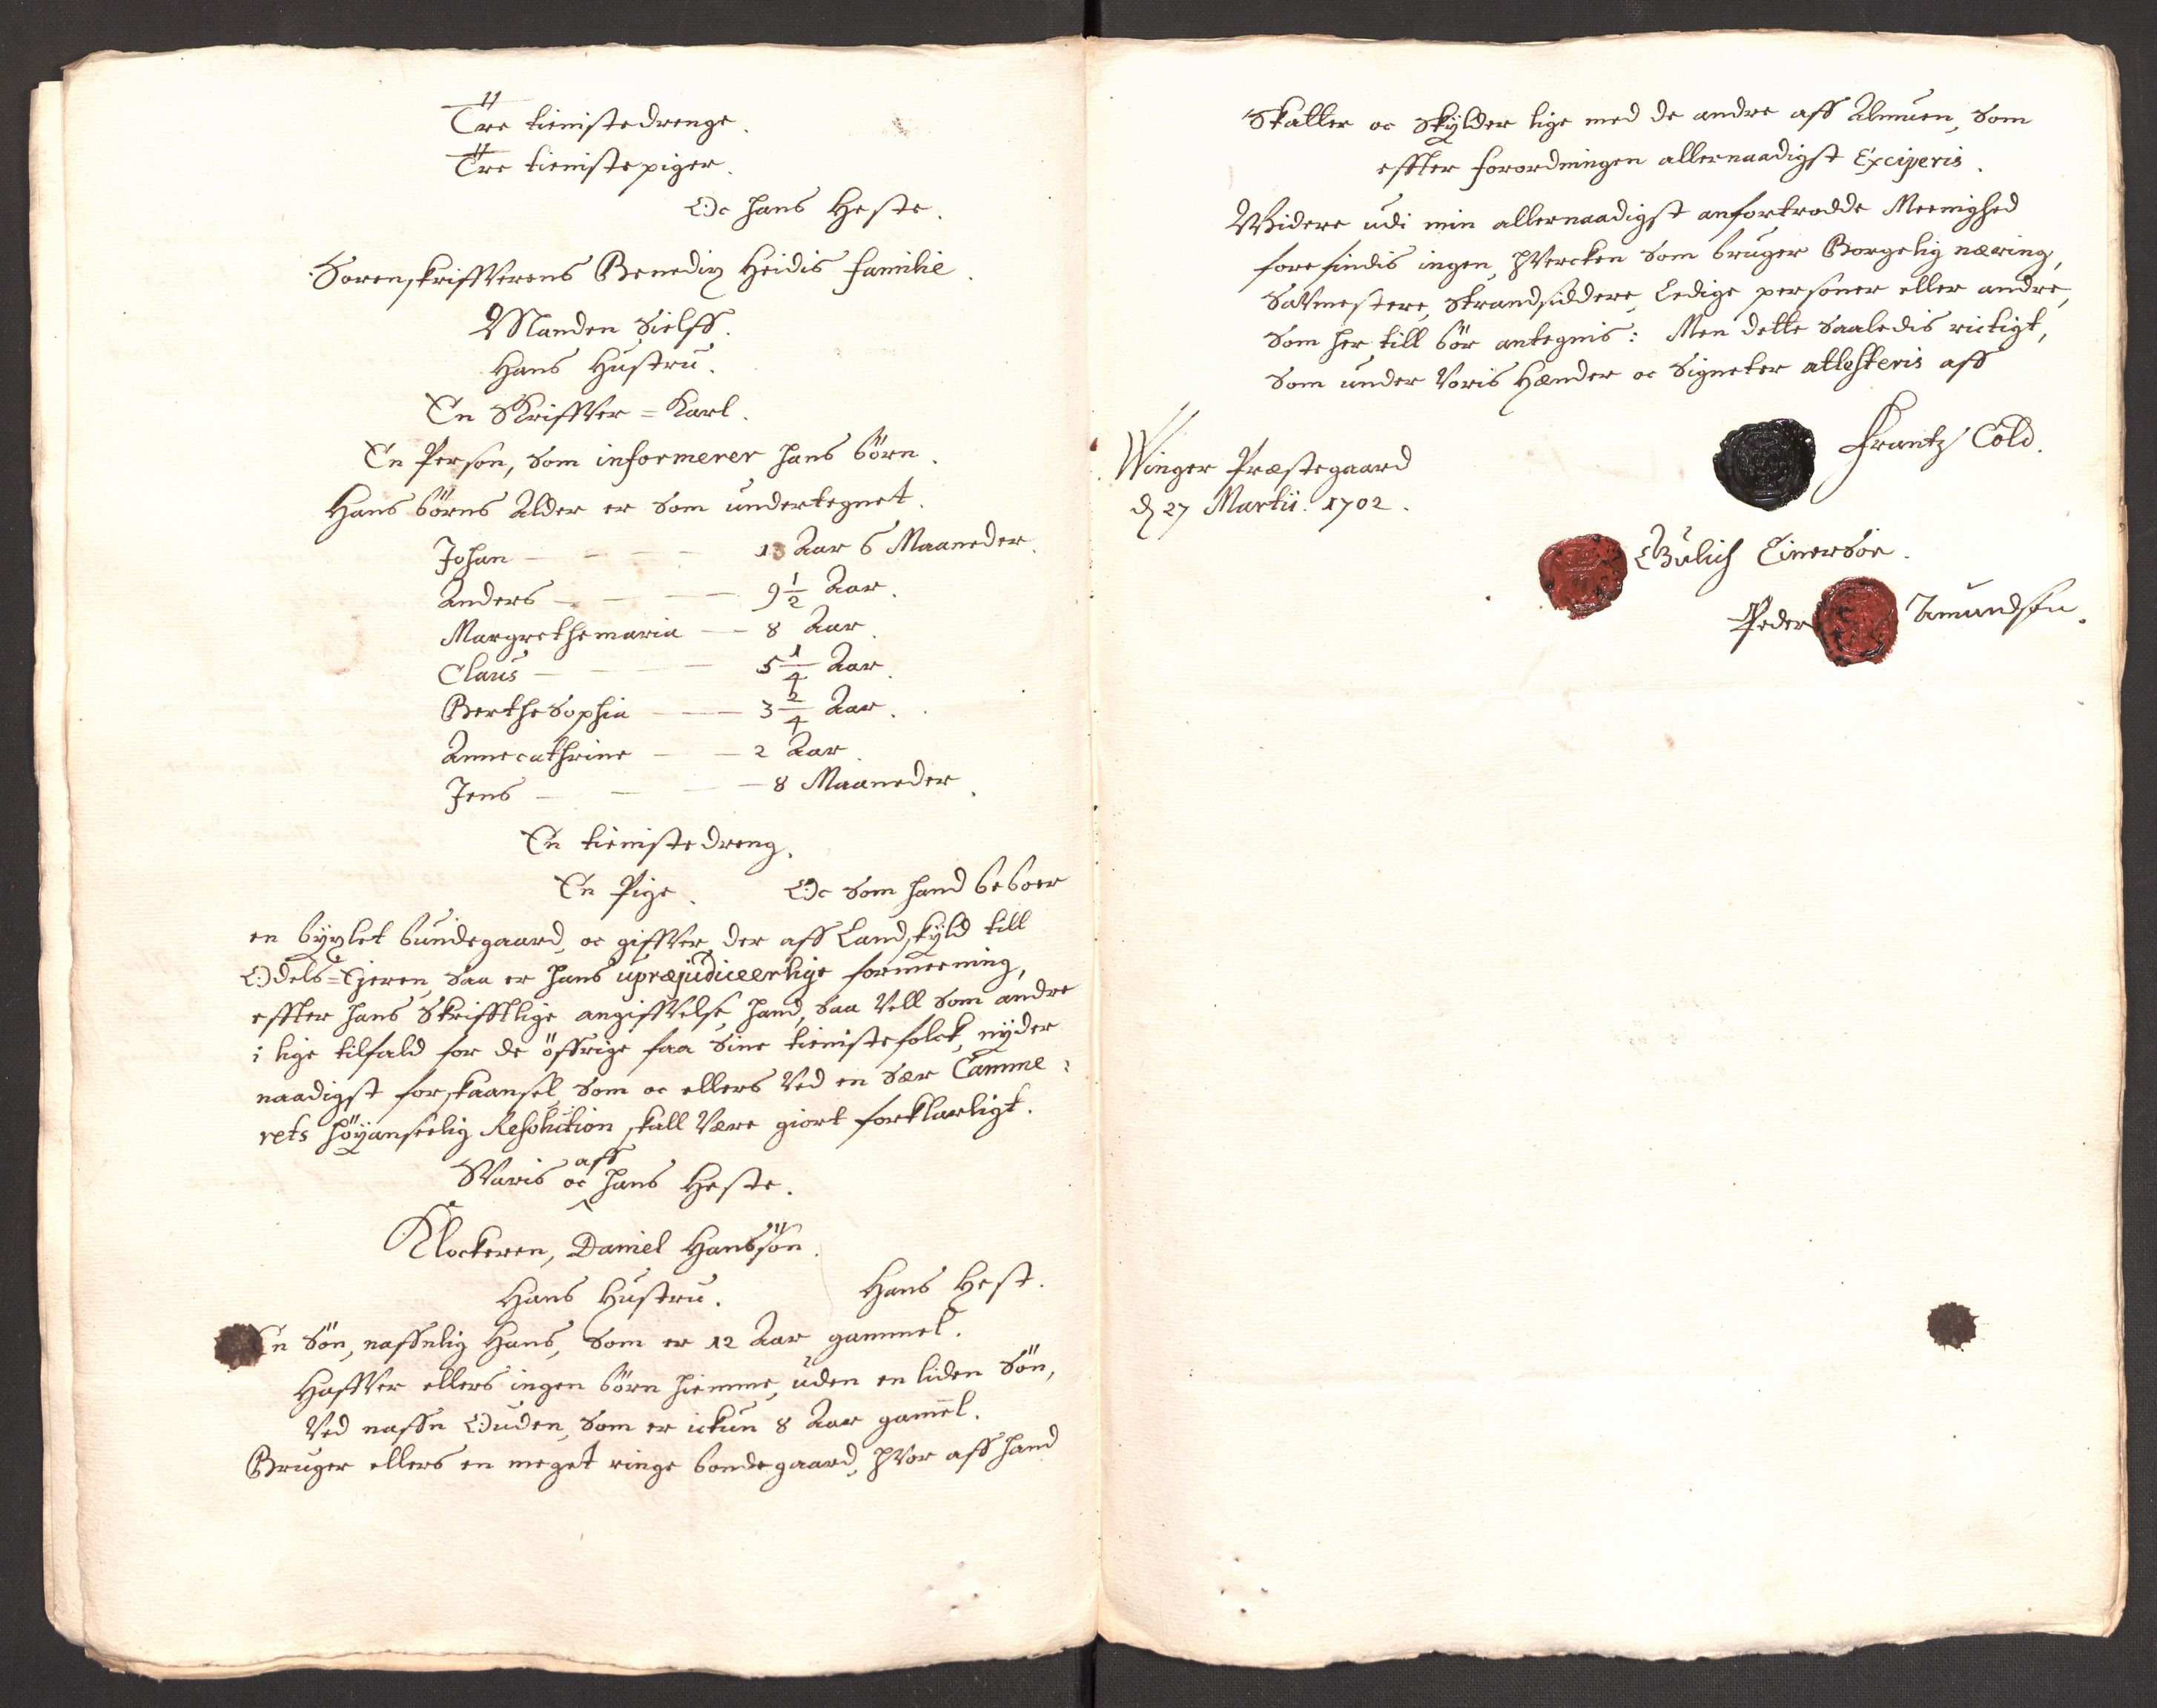 Tre tienistedrenge.
Tre tienistepiger.
Oc hans Heste.
Sorenskrifverens Benedix Heidis familie.
Manden Sielff.
Hans Hustru.
En Skriffver = Karl.
En Person, som informerer hans börn.
Hans börns Alder er som undertegnet.
Johan — 13 Aar 6 Maaneder.
Anders — 9 1/2 Aar.
Margrethemaria — 8 Aar.
Claus — 5 1/4 Aar.
Berthe Sophia — 3 2/4 Aar.
Annecathrine — 2 Aar.
Jens — 8 Maaneder.
En tienistedreng.
En Pige. Oc som hand beboer
en byxlet bundegaard, oc giffver der aff Landskyld till
Odels=Ejeren, saa er hans upræjudiceerlige formeening,
effter hans Skrifftlige angiffvelse, hand, saa vell som andre
i lige tilfald for de öffrige faa sine tienistefolck, nyder
naadigst forskaansel, som oc ellers ved en Sær Camme=
rets höyanseelig Resolution skall være giort forklarligt.
Svaris oc aff hans Heste.
Klockeren, Daniel Hanssön.
Hans Hustru. Hans Hest.
En Sön, naffnlig Hans, som er 12 Aar gammel.
Haffver ellers ingen börn hiemme, uden en liden Sön,
ved naffn Ouden, som er ickun 8 Aar gamel.
Bruger ellers en meget ringe bondegaard, hvor aff hand
Skatter oc Skylder lige med de andre aff Almuen, som
effter forordningen allernaadigst Exciperis.
Widere udi min allernaadigst anfortrodde Meenighed
forefindis ingen, hvercken som bruger Borgelig næring,
Savmestere, Strandsiddere, Ledige personer eller andre,
som her till bör antegnis: Men dette saaledis rictigt,
som under voris Hænder oc Signeter attesteris aff
Winger Præstegaard
d 27 Martii. 1702.
Frantz Cold.
Gulich Einersön.
Peder Amundsen.